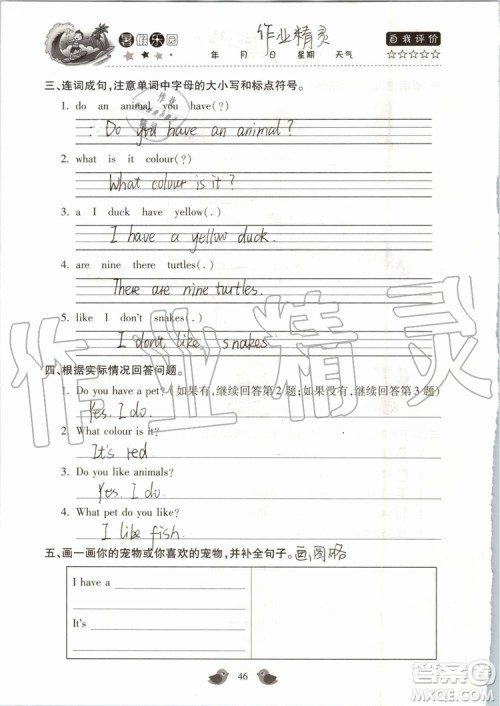 暑假乐园
作业精灵
年 月 日 星期 天气
自我评价
☆☆☆☆☆
三、连词成句，注意单词中字母的大小写和标点符号。
1. do an animal you have(?)
Do you have an animal?
2. what is it colour(?)
What colour is it?
3. a I duck have yellow(.)
I have a yellow duck.
4. are nine there turtles(.)
There are nine turtles.
5. like I don't snakes(.)
I don't like snakes.
四、根据实际情况回答问题。
1. Do you have a pet? (如果有,继续回答第2题;如果没有,继续回答第3题)
Yes. I do.
2. What colour is it?
It's red
3. Do you like animals?
Yes. I do.
4. What pet do you like?
I like fish.
五、画一画你的宠物或你喜欢的宠物,并补全句子。画图略
I have a
It's
46
作业精灵
答案圈
MXQE.COM